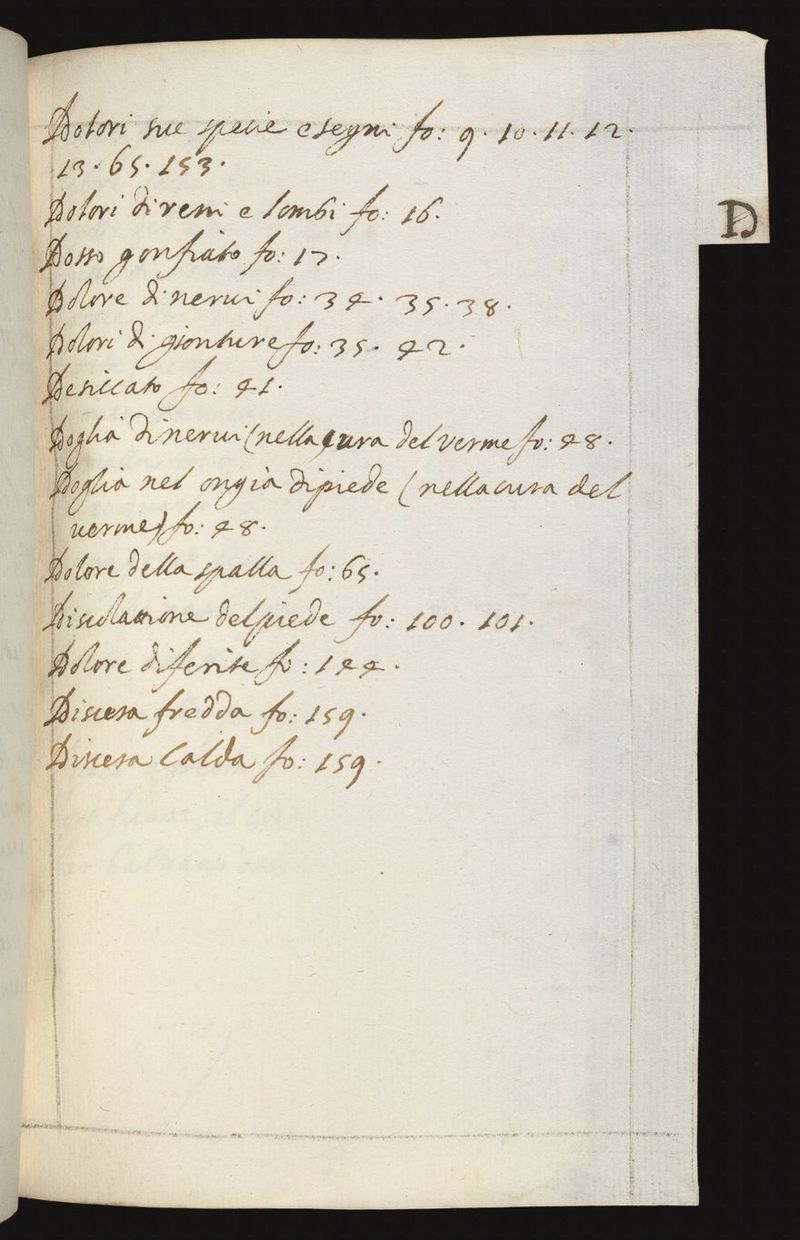 Dolori sue specie e segni fo: 9. 10. 11. 12.
13. 65. 153.
D
Dolori di reni e lombi fo: 16.
Dosso gonfiato fo: 17.
Dolore di nervi fo: 34. 35. 38.
Dolori di gionture fo: 35. 42.
Desiccato fo: 41.
Doglia di nervi (nella cura del verme fo: 48.
Doglia nel ongia di piede (nella cura del
verme) fo: 48.
Dolore della spalla fo: 65.
Disculattione del piede fo: 100. 101.
Dolore di ferite fo: 144.
Discesa fredda fo: 159.
Discesa calda fo: 159.